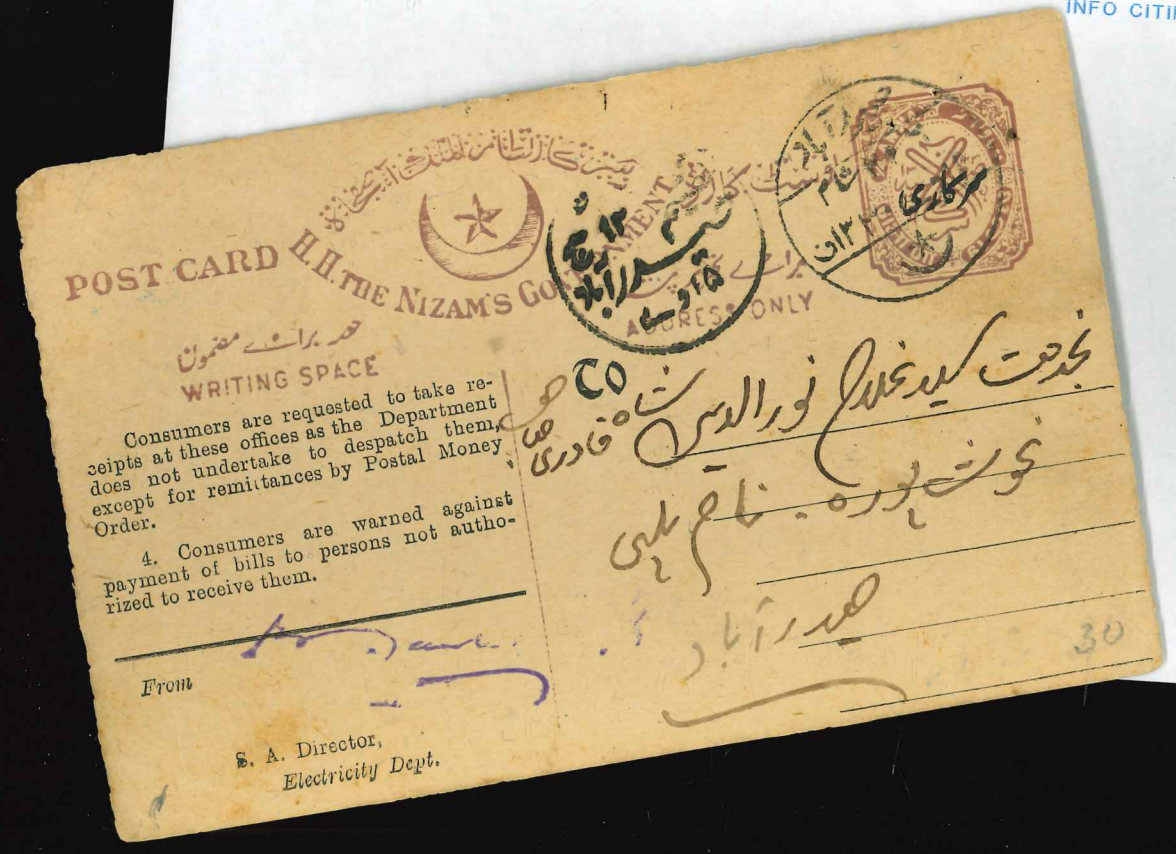 INFO CITI
POST CARD
H. H. THE NIZAM'S GOVERNMENT
حد براے مضمون
WRITING SPACE
براے
ADDRESS ONLY
حیدرآباد
سرکاری
حیدرآباد
Consumers are requested to take re-
ceipts at these offices as the Department
does not undertake to despatch them,
except for remittances by Postal Money
Order.
4. Consumers are warned against
payment of bills to persons not autho-
rized to receive them.
From
S. A. Director,
Electricity Dept.
بخدمت سید غلام نور الدین شاہ قادری صاحب
غوث پورہ - نام پلی
حیدرآباد
30